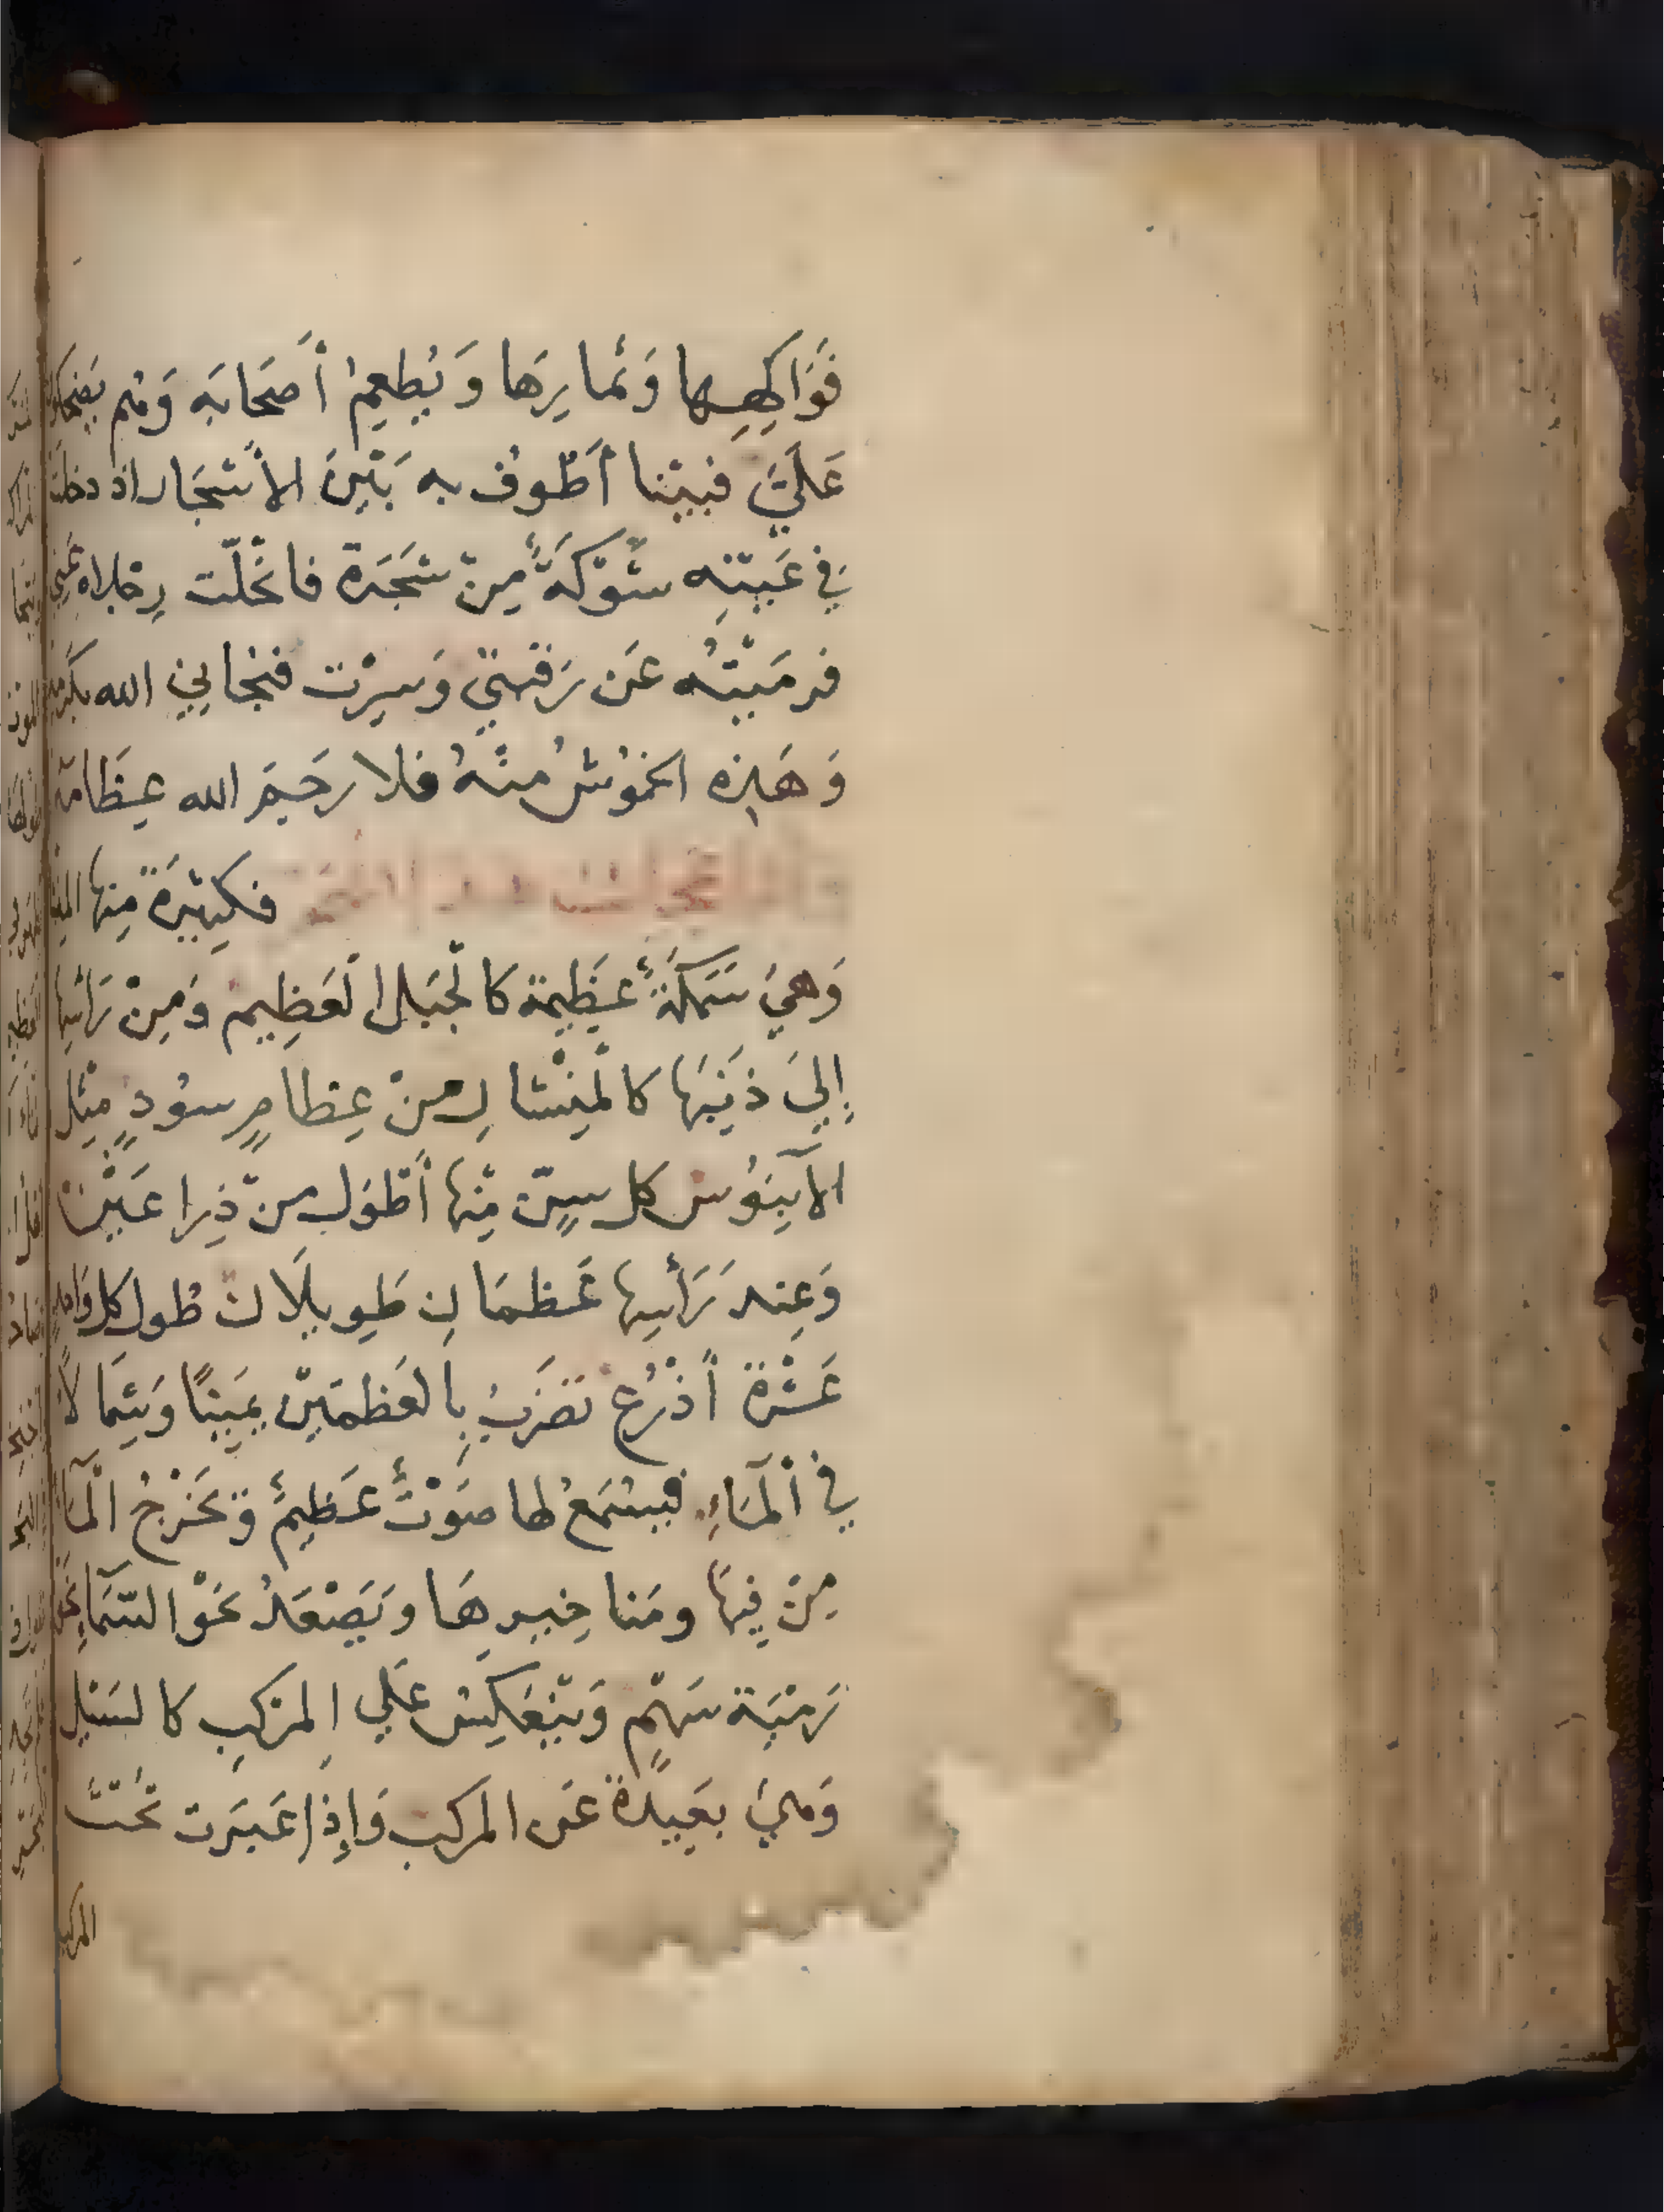 فَوَاكِهِهَا وَثمارِهَا وَيُطعِمُ أَصحَابَه وَهُم يَضحَكُون
عَلَيَّ فَبَيْنَا أَطُوفُ به بَيْنَ الأَشجَار اذ دخلَت
فِي عَيْنِه شَوْكَةٌ مِنْ شَجَرَة فانحَلَّت رِجْلاه عَنِّي
فرَمَيْتُه عَن رَقبَتِي وَسِرْت فنجانِي الله بكَرمِه
وَهَذِه الخمُوشُ منْهُ فلا رحَمَ الله عِظَامَهُ
فكثِيرَةٌ مِنها المنشار
وَهيَ سَمَكَةٌ عَظِيمَة كالْجَبَل الْعَظِيم وَمِنْ رَأْسِها
إِلىَ ذَنَبِهَا كالْمِنْشارِ مِنْ عِظامٍ سُودٍ مِثْل
الآبنُوس كل سِنّ مِنْها أَطْوَل مِنْ ذِراعَيْن
وَعِند رَأْسِها عَظمَانِ طَوِيلَان طُول كل وَاحدٍ
عَشْرَة أَذْرُع تضرِبُ بِالعَظمَيْن يمِينًا وَشِمالاً
فِي الْمَآءِ فيُسْمَعُ لها صَوْتٌ عَظِيمٌ وَيَخْرُجُ الْمَآ
مِنْ فِيهَا ومَناخِيرِهَا وَيَصْعَدُ نَحْوَ السَّمَآءِ نَحْو
رَمْيَة سَهْمٍ وَيَنْعَكِس عَلَي المرْكِب كالسَيْل
وَهيَ بَعِيدَةٌ عَن المركب وَإِذا عَبَرَت تَحْتَ
المركب